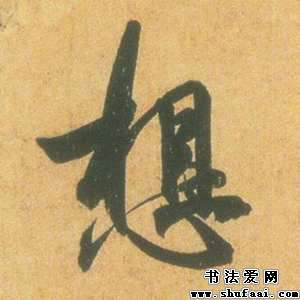 想
书法爱网
www.shufaai.com